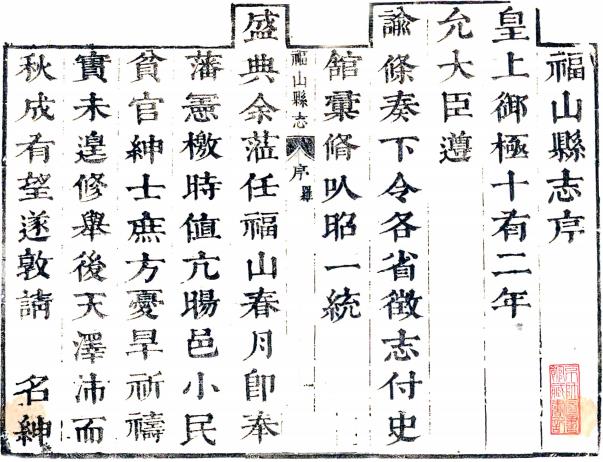 福山縣志序
皇上御極十有二年
允大臣遵
諭條奏下令各省徵志付史
館彙脩㕥昭一統
福山縣志 序
盛典余蒞任福山春月即奉
藩憲檄時值亢暘邑小民
貧官紳士庶方憂旱祈禱
實未遑修舉後天澤沛而
秋成有望遂敦請 名紳